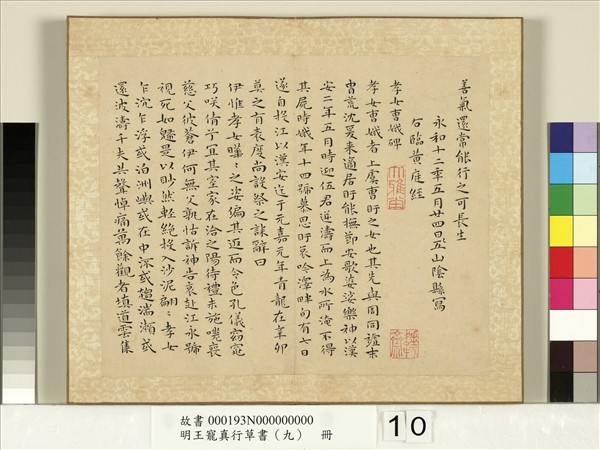 善氣還常能行之可長生
永和十二年五月廿四日五山陰縣寫
右臨黃庭經
孝女曹娥碑
孝女曹娥者上虞曹盱之女也其先與周同證末
胄荒沈爰来適居盱能撫節安歌婆娑樂神以漢
安二年五月時迎伍君逆濤而上為水所淹不得
其屍時娥年十四號慕思盱哀吟澤畔旬有七日
遂自投江以漢安迄于元嘉元年青龍在辛卯
莫之有表度尚設祭之誄辭曰
伊惟孝女曄〻之姿偏其返而令色孔儀窈窕
巧咲倩兮宜其室家在洽之陽待禮未施嗟喪
慈父彼蒼伊何無父孰怙訴神告哀赴江永號
視死如歸是以眇然輕絶投入沙泥翩〻孝女
乍沉乍浮或泊洲嶼或在中深或趍湍瀨或
還波濤千夫共聲悼痛萬餘觀者填道雲集
故書 000193N000000000
明王寵真行草書（九） 冊
10